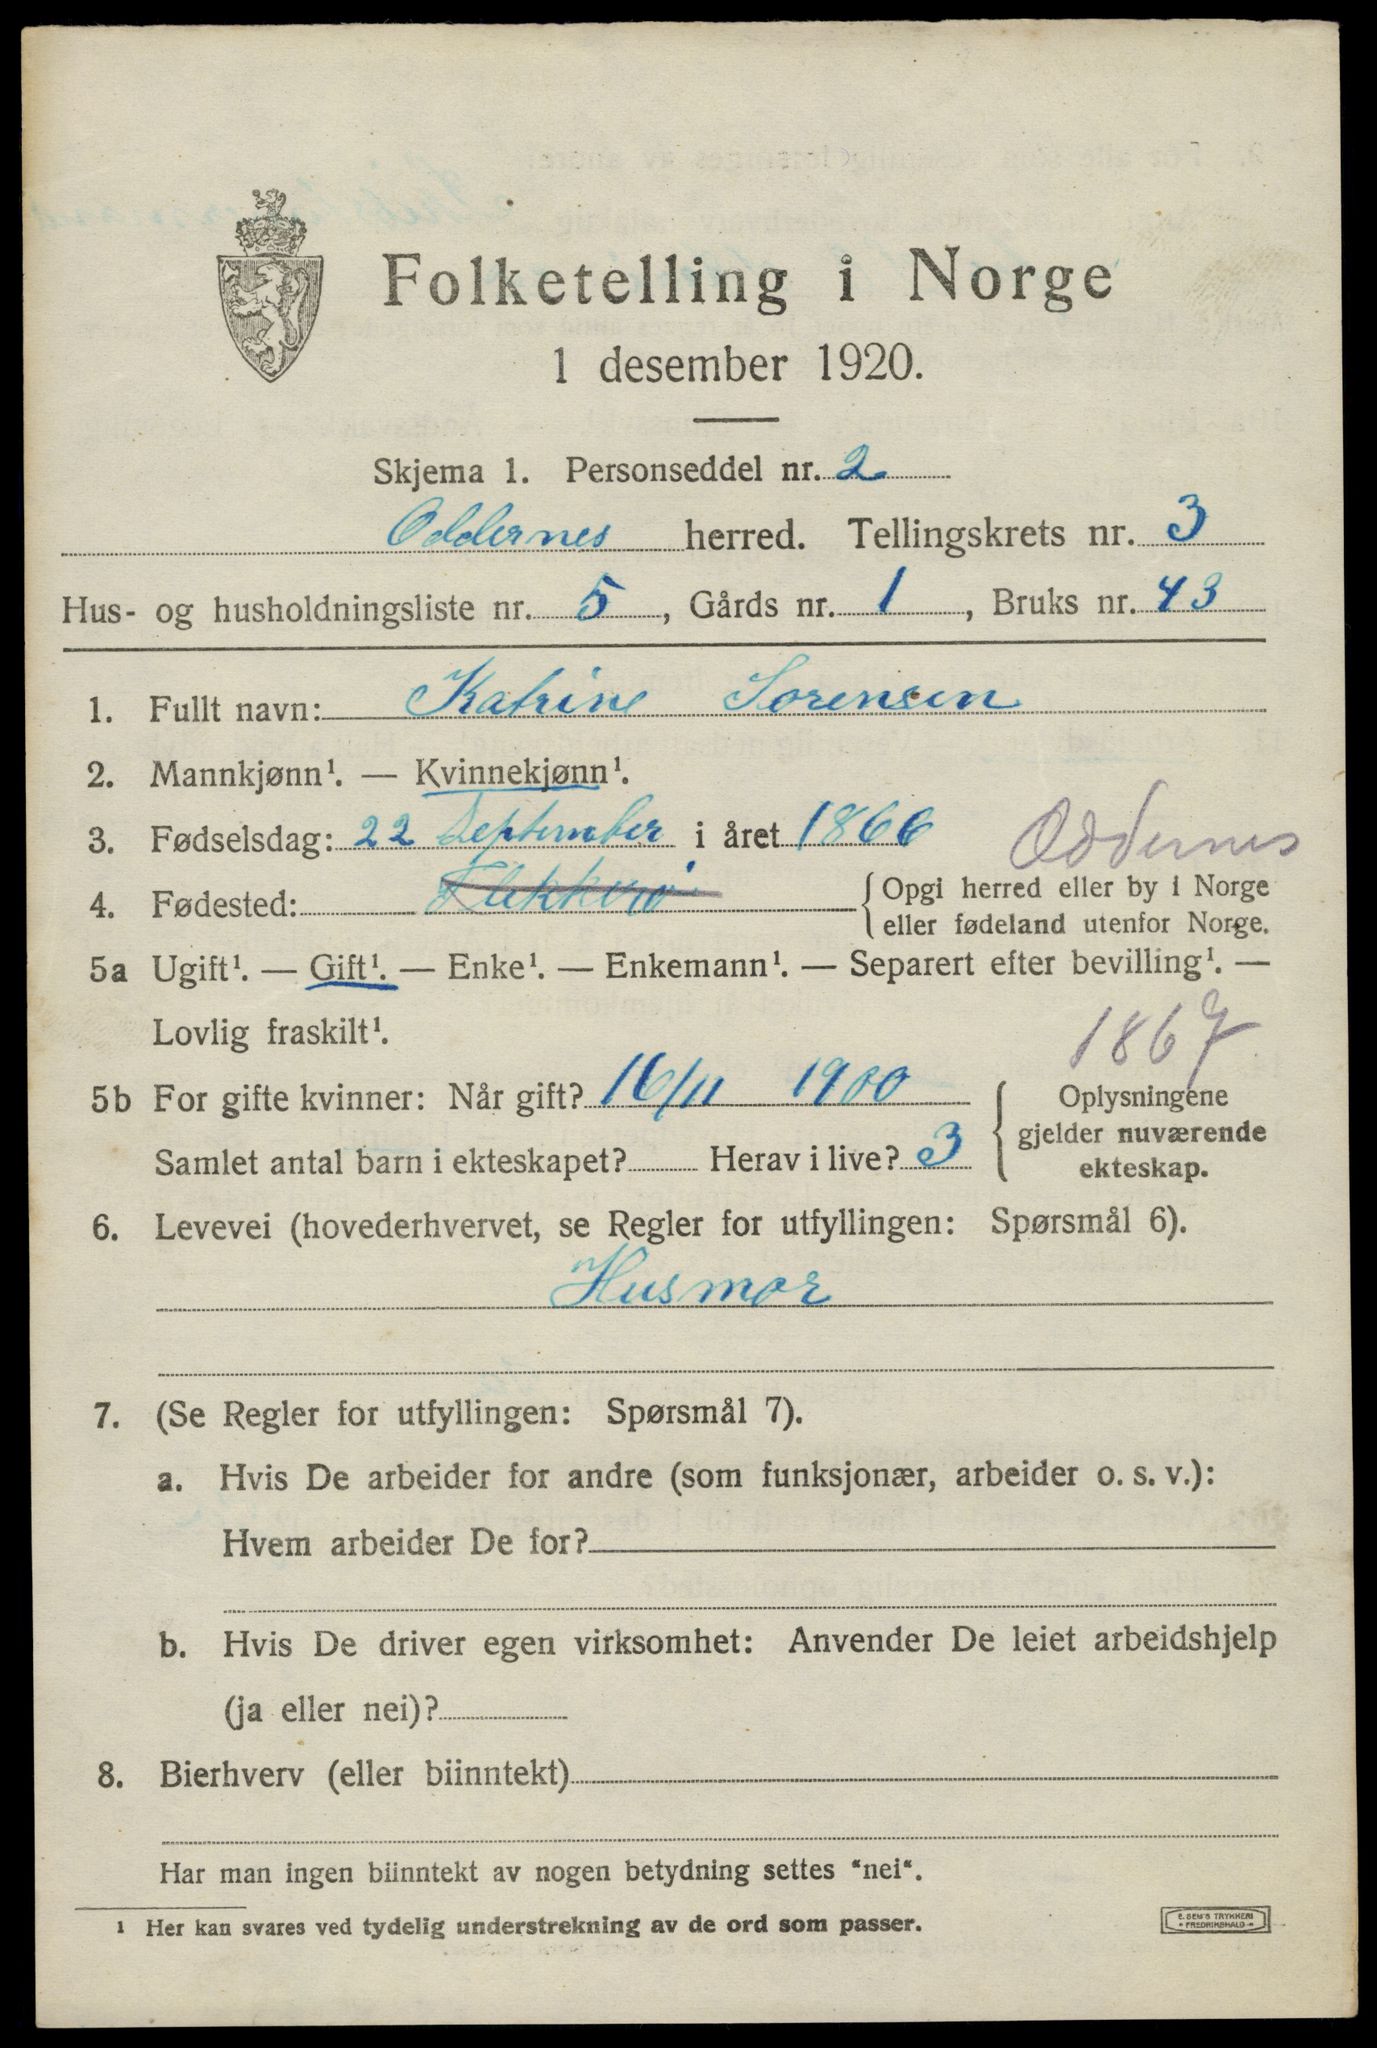 Folketelling i Norge
1 desember 1920.
Skjema 1. Personseddel nr. 2
Oddernes herred. Tellingskrets nr. 3
Hus- og husholdningsliste nr. 5, Gårds nr. 1, Bruks nr. 43
1. Fullt navn: Katrine Sorensen
2. Mannkjønn¹. — Kvinnekjønn¹.
3. Fødselsdag: 22 September i året 1866
Oddernes
4. Fødested: Flekkerø {Opgi herred eller by i Norge
eller fødeland utenfor Norge.
5a Ugift¹. — Gift¹. — Enke¹. — Enkemann¹. — Separert efter bevilling¹. —
Lovlig fraskilt¹.
1867
5b For gifte kvinner: Når gift? 16/11 1900
Samlet antal barn i ekteskapet? Herav i live? 3
{Oplysningene
gjelder nuværende
ekteskap.
6. Levevei (hovederhvervet, se Regler for utfyllingen: Spørsmål 6).
Husmor
7. (Se Regler for utfyllingen: Spørsmål 7).
a. Hvis De arbeider for andre (som funksjonær, arbeider o. s. v.):
Hvem arbeider De for?
b. Hvis De driver egen virksomhet: Anvender De leiet arbeidshjelp
(ja eller nei)?
8. Bierhverv (eller biinntekt)
Har man ingen biinntekt av nogen betydning settes "nei".
¹ Her kan svares ved tydelig understrekning av de ord som passer.
E. SEM'S TRYKKERI
FREDRIKSHALD